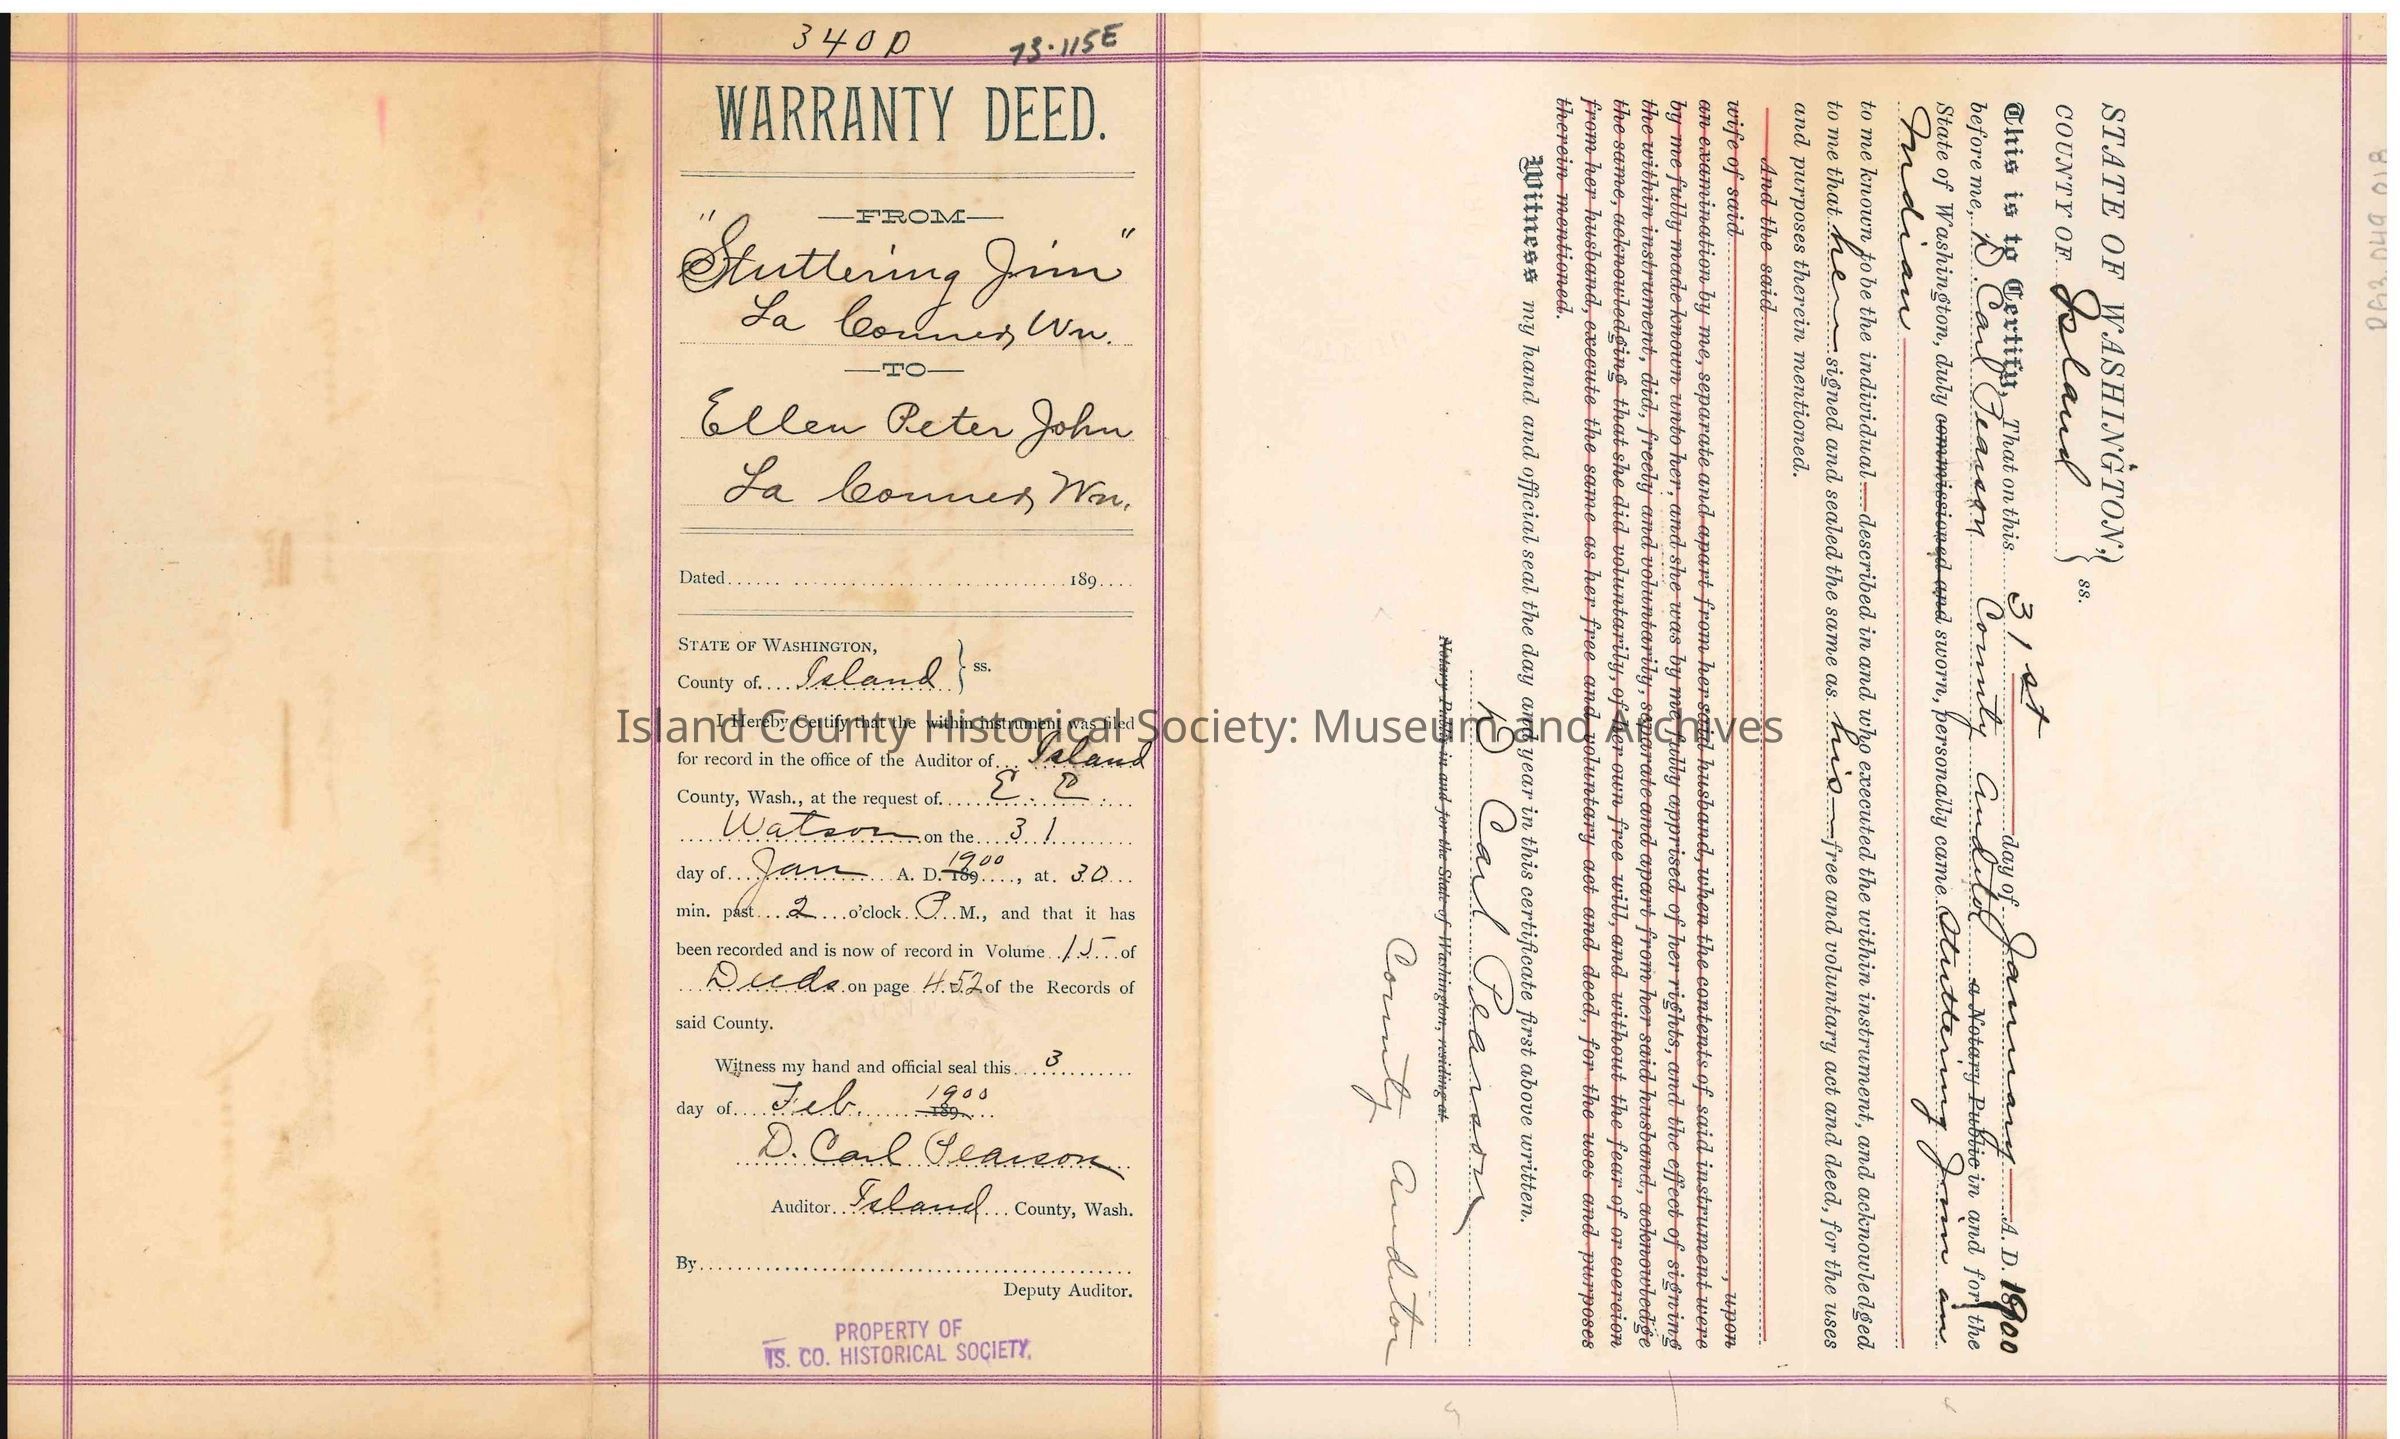 340 D 73.115E
WARRANTY DEED.
—FROM—
"Stuttering Jim"
La Conner, Wn.
—TO—
Ellen Peter John
La Conner, Wn.
Dated.............................189....
STATE OF WASHINGTON,
County of.... Island } ss.
I Hereby Certify that the within instrument was filed
for record in the office of the Auditor of... Island
County, Wash., at the request of...... E. E.
Watson on the... 31
day of... Jan A. D. 189 1900, at. 30
min. past... 2 ...o'clock P. M., and that it has
been recorded and is now of record in Volume 15 of
Deeds on page 452 of the Records of
said County.
Witness my hand and official seal this... 3
day of... Feb. 189 1900
D. Carl Pearson
Auditor Island County, Wash.
By
Deputy Auditor.
PROPERTY OF
IS. CO. HISTORICAL SOCIETY.
Island County Historical Society: Museum and Archives
STATE OF WASHINGTON, } ss.
COUNTY OF Island
This is to Certify, That on this 31st day of January A. D. 1900
before me, D. Carl Pearson County Auditor a Notary Public in and for the
State of Washington, duly commissioned and sworn, personally came Stuttering Jim an
Indian
to me known to be the individual described in and who executed the within instrument, and acknowledged
to me that he signed and sealed the same as his free and voluntary act and deed, for the uses
and purposes therein mentioned.
And the said
wife of said , upon
an examination by me, separate and apart from her said husband, when the contents of said instrument were
by me fully made known unto her, and she was by me fully apprised of her rights, and the effect of signing
the within instrument, did, freely and voluntarily, separate and apart from her said husband, acknowledge
the same, acknowledging that she did voluntarily, of her own free will, and without the fear of or coercion
from her husband, execute the same as her free and voluntary act and deed, for the uses and purposes
therein mentioned.
Witness my hand and official seal the day and year in this certificate first above written.
D Carl Pearson
Notary Public in and for the State of Washington, residing at
County Auditor